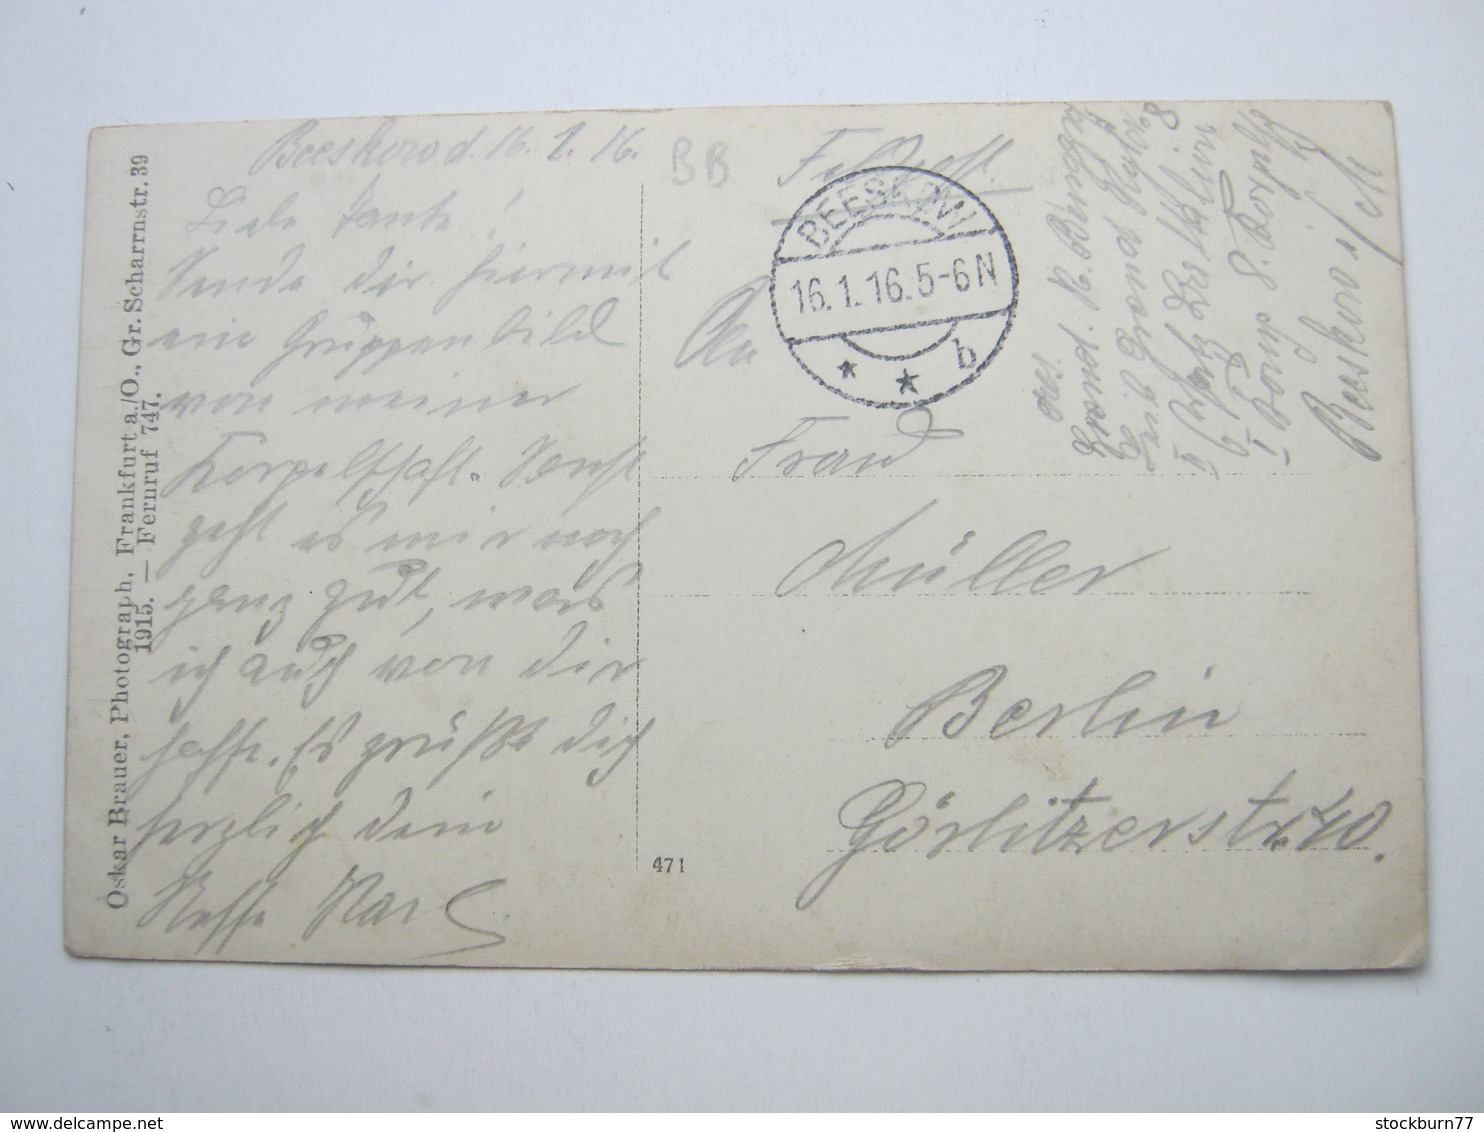 Oskar Brauer, Photograph, Frankfurt a./O., Gr. Scharrnstr. 39
1915. — Fernruf 747.
Beeskow d. 16. 1. 16.
Liebe Tante!
Sende dir hiermit
ein Gruppenbild
von meiner
Korpelschaft. Sonst
geht es mir noch
ganz gut, was
ich auch von dir
hoffe. Es grüßt dich
herzlich dein
Neffe Karl
BB
Feldpost.
BEESKOW
16.1.16.5-6N
* * b
An
Frau
Müller
Berlin
Görlitzerstr. 40.
471
Abs.
K.
Leib. Grenad
II
I Komp 8. Korplsch
Beeskow i/M
stockburn77